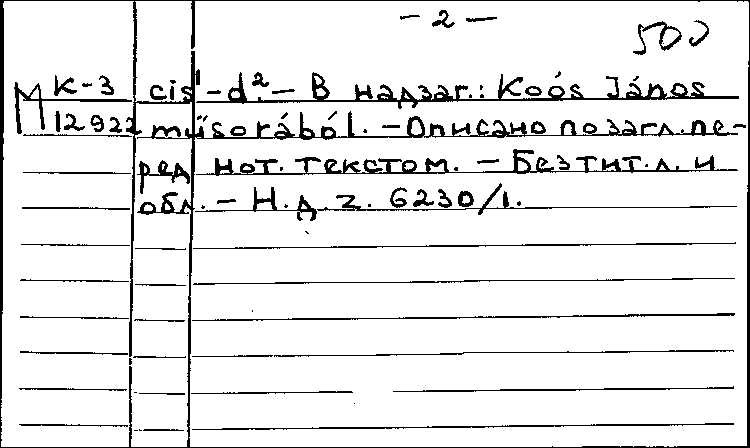 - 2 -
500
М К-3 cis¹-d².- В надзаг.: Koós János
12922 műsorából. - Описано по загл. пе-
ред нот. текстом. - Без тит. л. и
обл. - Н.д. Z. 6230/1.